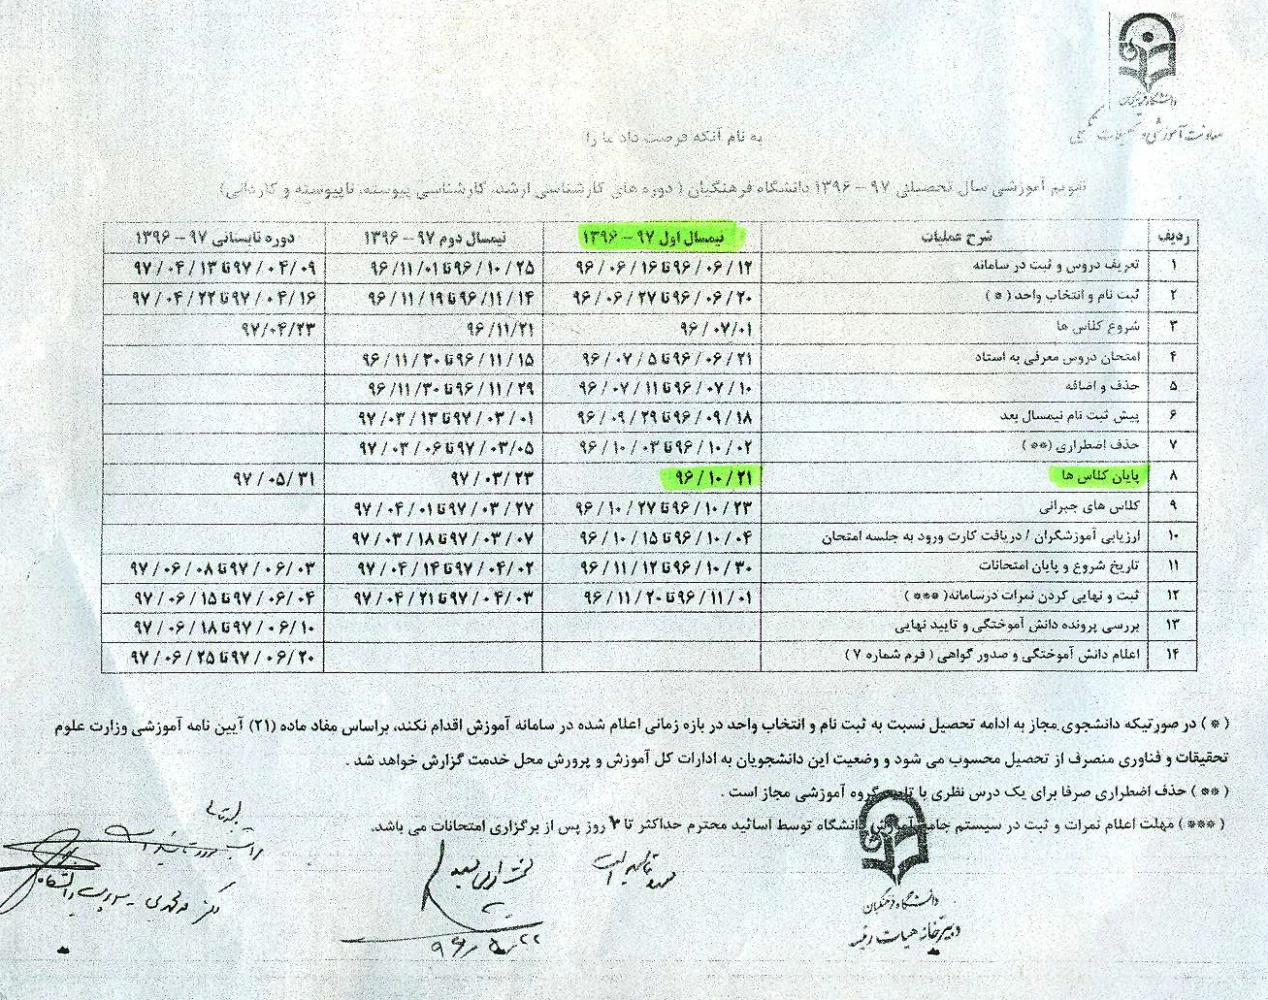 دانشگاه فرهنگیان
معاونت آموزشی و تحصیلات تکمیلی
به نام آنکه فرصت داد ما را
تقویم آموزشی سال تحصیلی ۹۷ – ۱۳۹۶ دانشگاه فرهنگیان ( دوره های کارشناسی ارشد، کارشناسی پیوسته، ناپیوسته و کاردانی)
ردیف شرح عملیات نیمسال اول ۹۷ – ۱۳۹۶ نیمسال دوم ۹۷ – ۱۳۹۶ دوره تابستانی ۹۷ – ۱۳۹۶
۱ تعریف دروس و ثبت در سامانه ۹۶/۰۶/۱۲ تا ۹۶/۰۶/۱۶ ۹۶/۱۰/۲۵ تا ۹۶/۱۱/۰۱ ۹۷/۰۴/۰۹ تا ۹۷/۰۴/۱۳
۲ ثبت نام و انتخاب واحد ( * ) ۹۶/۰۶/۲۰ تا ۹۶/۰۶/۲۷ ۹۶/۱۱/۱۴ تا ۹۶/۱۱/۱۹ ۹۷/۰۴/۱۶ تا ۹۷/۰۴/۲۲
۳ شروع کلاس ها ۹۶/۰۷/۰۱ ۹۶/۱۱/۲۱ ۹۷/۰۴/۲۳
۴ امتحان دروس معرفی به استاد ۹۶/۰۶/۲۱ تا ۹۶/۰۷/۵ ۹۶/۱۱/۱۵ تا ۹۶/۱۱/۳۰
۵ حذف و اضافه ۹۶/۰۷/۱۰ تا ۹۶/۰۷/۱۱ ۹۶/۱۱/۲۹ تا ۹۶/۱۱/۳۰
۶ پیش ثبت نام نیمسال بعد ۹۶/۰۹/۱۸ تا ۹۶/۰۹/۲۹ ۹۷/۰۳/۰۱ تا ۹۷/۰۳/۱۳
۷ حذف اضطراری (**) ۹۶/۱۰/۰۲ تا ۹۶/۱۰/۰۳ ۹۷/۰۳/۰۵ تا ۹۷/۰۳/۰۶
۸ پایان کلاس ها ۹۶/۱۰/۲۱ ۹۷/۰۳/۲۳ ۹۷/۰۵/۳۱
۹ کلاس های جبرانی ۹۶/۱۰/۲۳ تا ۹۶/۱۰/۲۷ ۹۷/۰۳/۲۷ تا ۹۷/۰۴/۰۱
۱۰ ارزیابی آموزشگران / دریافت کارت ورود به جلسه امتحان ۹۶/۱۰/۰۴ تا ۹۶/۱۰/۱۵ ۹۷/۰۳/۰۷ تا ۹۷/۰۳/۱۸
۱۱ تاریخ شروع و پایان امتحانات ۹۶/۱۰/۳۰ تا ۹۶/۱۱/۱۲ ۹۷/۰۴/۰۲ تا ۹۷/۰۴/۱۴ ۹۷/۰۶/۰۳ تا ۹۷/۰۶/۰۸
۱۲ ثبت و نهایی کردن نمرات درسامانه( *** ) ۹۶/۱۱/۰۱ تا ۹۶/۱۱/۲۰ ۹۷/۰۴/۰۳ تا ۹۷/۰۴/۲۱ ۹۷/۰۶/۰۴ تا ۹۷/۰۶/۱۵
۱۳ بررسی پرونده دانش آموختگی و تایید نهایی ۹۷/۰۶/۱۰ تا ۹۷/۰۶/۱۸
۱۴ اعلام دانش آموختگی و صدور گواهی ( فرم شماره ۷ ) ۹۷/۰۶/۲۰ تا ۹۷/۰۶/۲۵
( * ) در صورتیکه دانشجوی مجاز به ادامه تحصیل نسبت به ثبت نام و انتخاب واحد در بازه زمانی اعلام شده در سامانه آموزش اقدام نکند، براساس مفاد ماده (۲۱) آیین نامه آموزشی وزارت علوم
تحقیقات و فناوری منصرف از تحصیل محسوب می شود و وضعیت این دانشجویان به ادارات کل آموزش و پرورش محل خدمت گزارش خواهد شد .
( ** ) حذف اضطراری صرفا برای یک درس نظری با تایید گروه آموزشی مجاز است .
( *** ) مهلت اعلام نمرات و ثبت در سیستم جامع آموزش دانشگاه توسط اساتید محترم حداکثر تا ۲ روز پس از برگزاری امتحانات می باشد.
دانشگاه فرهنگیان
دبیرخانه هیات رئیسه